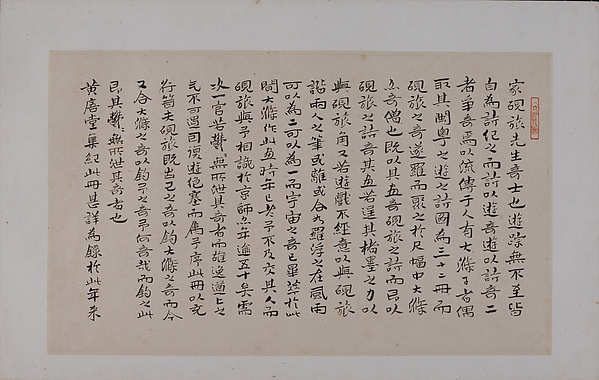 家硯旅先生奇士也遊蹤無不至皆
自為詩紀之而詩以遊奇遊以詩奇二
者爭奇焉以流傳於人有大滌子者偶
取其閩粵之遊之詩圖為三十二冊而
硯旅之奇遂羅而聚之於尺幅中大滌
亦奇偶也既以其畫奇硯旅之詩而即以
硯旅之詩奇其畫若逞其楮墨之力以
與硯旅角又若遊戲不經意以與硯旅
諧兩人之筆或離或合如羅浮之在風雨
可以為二可以為一而宇宙之奇已畢萃於此
間大滌作此畫時年已老予不及交其人而
硯旅與予相識於京師亦年逾五十矣需
次一官若鬱無所泄其奇者而雄邁上之
氣不可遏因復遊絕塞而屬予序此冊以充
行笥夫硯旅既出己之奇以鈎大滌之奇而今
又合大滌之奇以鈎予之奇予何奇哉而鈎之此
即其鬱無所泄其奇者也
黃唐堂集紀此冊甚詳為錄於此年來